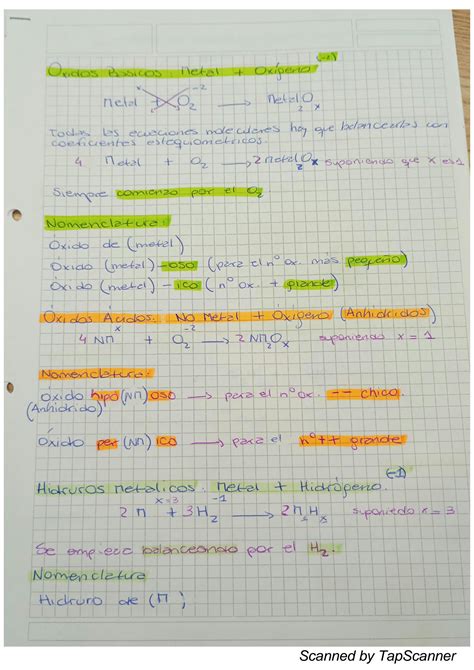 Óxidos Básicos: Metal + Oxígeno (-2)
x -2
Metal + O2 → Metal2Ox
Todas las ecuaciones moleculares hay que balancearlas con
coeficientes estequiometricos.
4 Metal + O2 → 2 Metal2Ox suponiendo que x es 1
Siempre comienzo por el O2.
Nomenclatura:
Óxido de (metal)
Óxido (metal) -oso (para el nº ox. mas pequeño)
Óxido (metal) - ico (nº ox. + grande)
Óxidos Ácidos: No Metal + Oxígeno (Anhidridos)
x -2
4 NM + O2 → 2 NM2Ox suponiendo x = 1
Nomenclatura:
Óxido hipo (NM) oso → para el nº ox. -- chico.
(Anhidrido)
Óxido per (NM) ico → para el nº++ grande
Hidruros metalicos: Metal + Hidrógeno (-1)
x=3 -1
2 M + 3H2 → 2 M Hx suponiedo x = 3
Se empieza balanceando por el H2.
Nomenclatura
Hidruro de (M ;
Scanned by TapScanner